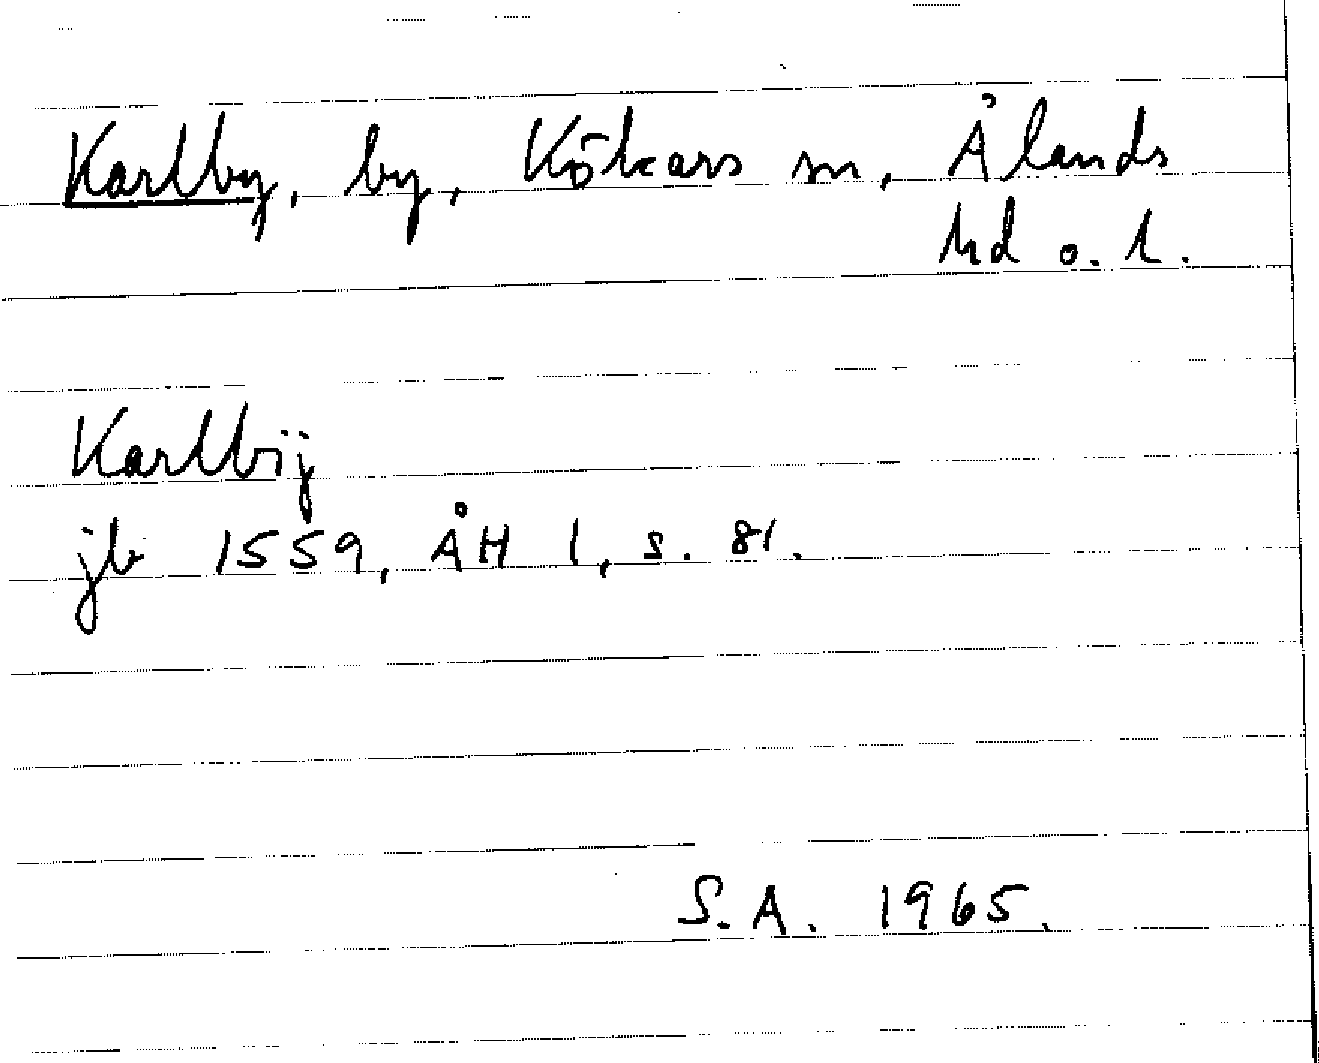 Karlby, by, Kökars sn, Ålands
hd o. l.
Karlbij
jb 1559, ÅH 1, s. 81.
S.A. 1965.